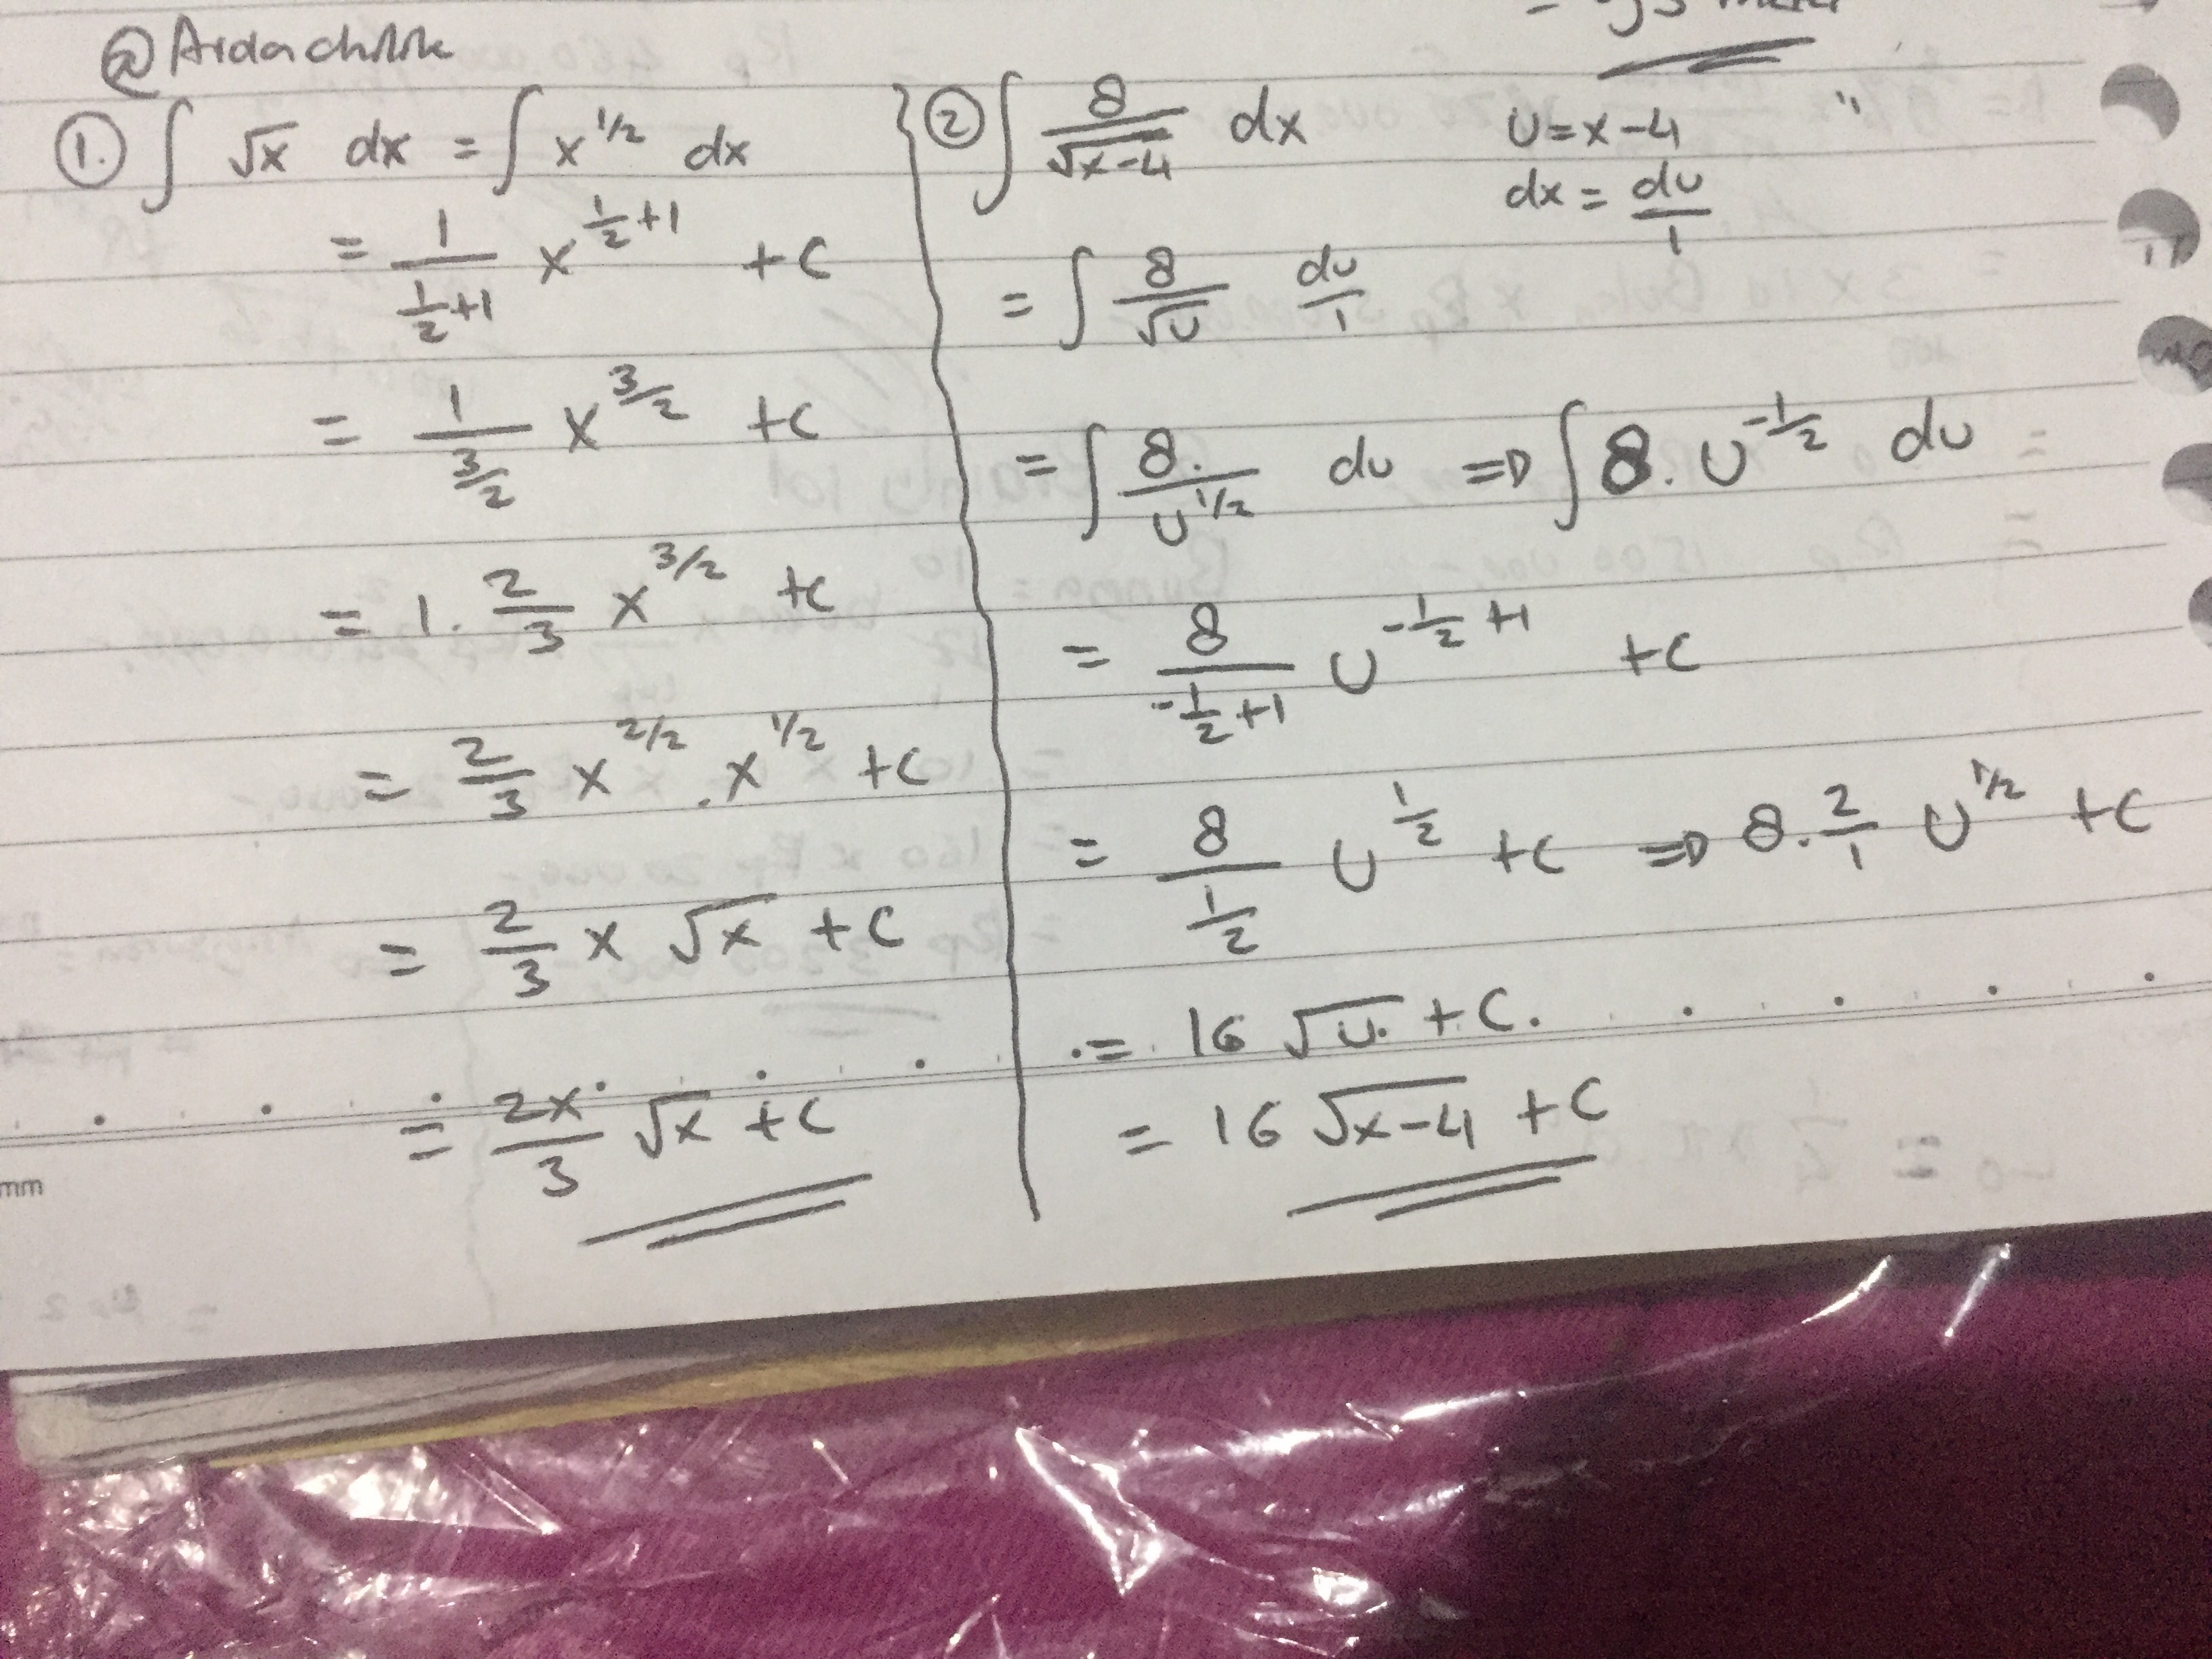 @Ardachilik
①. ∫ √x dx = ∫ x^{1/2} dx
= 1/(1/2+1) x^{1/2+1} + c
= 1/(3/2) x^{3/2} + c
= 1. 2/3 x^{3/2} + c
= 2/3 x^{2/2} . x^{1/2} + c
= 2/3 x √x + c
= 2x/3 √x + c
② ∫ 8/√(x-4) dx
U = x-4
dx = du/1
= ∫ 8/√U du/1
= ∫ 8./U^{1/2} du ⇒ ∫ 8. U^{-1/2} du
= 8/(-1/2+1) U^{-1/2+1} + c
= 8/(1/2) U^{1/2} + c ⇒ 8. 2/1 U^{1/2} + c
= 16 √U + C.
= 16 √(x-4) + C
mm